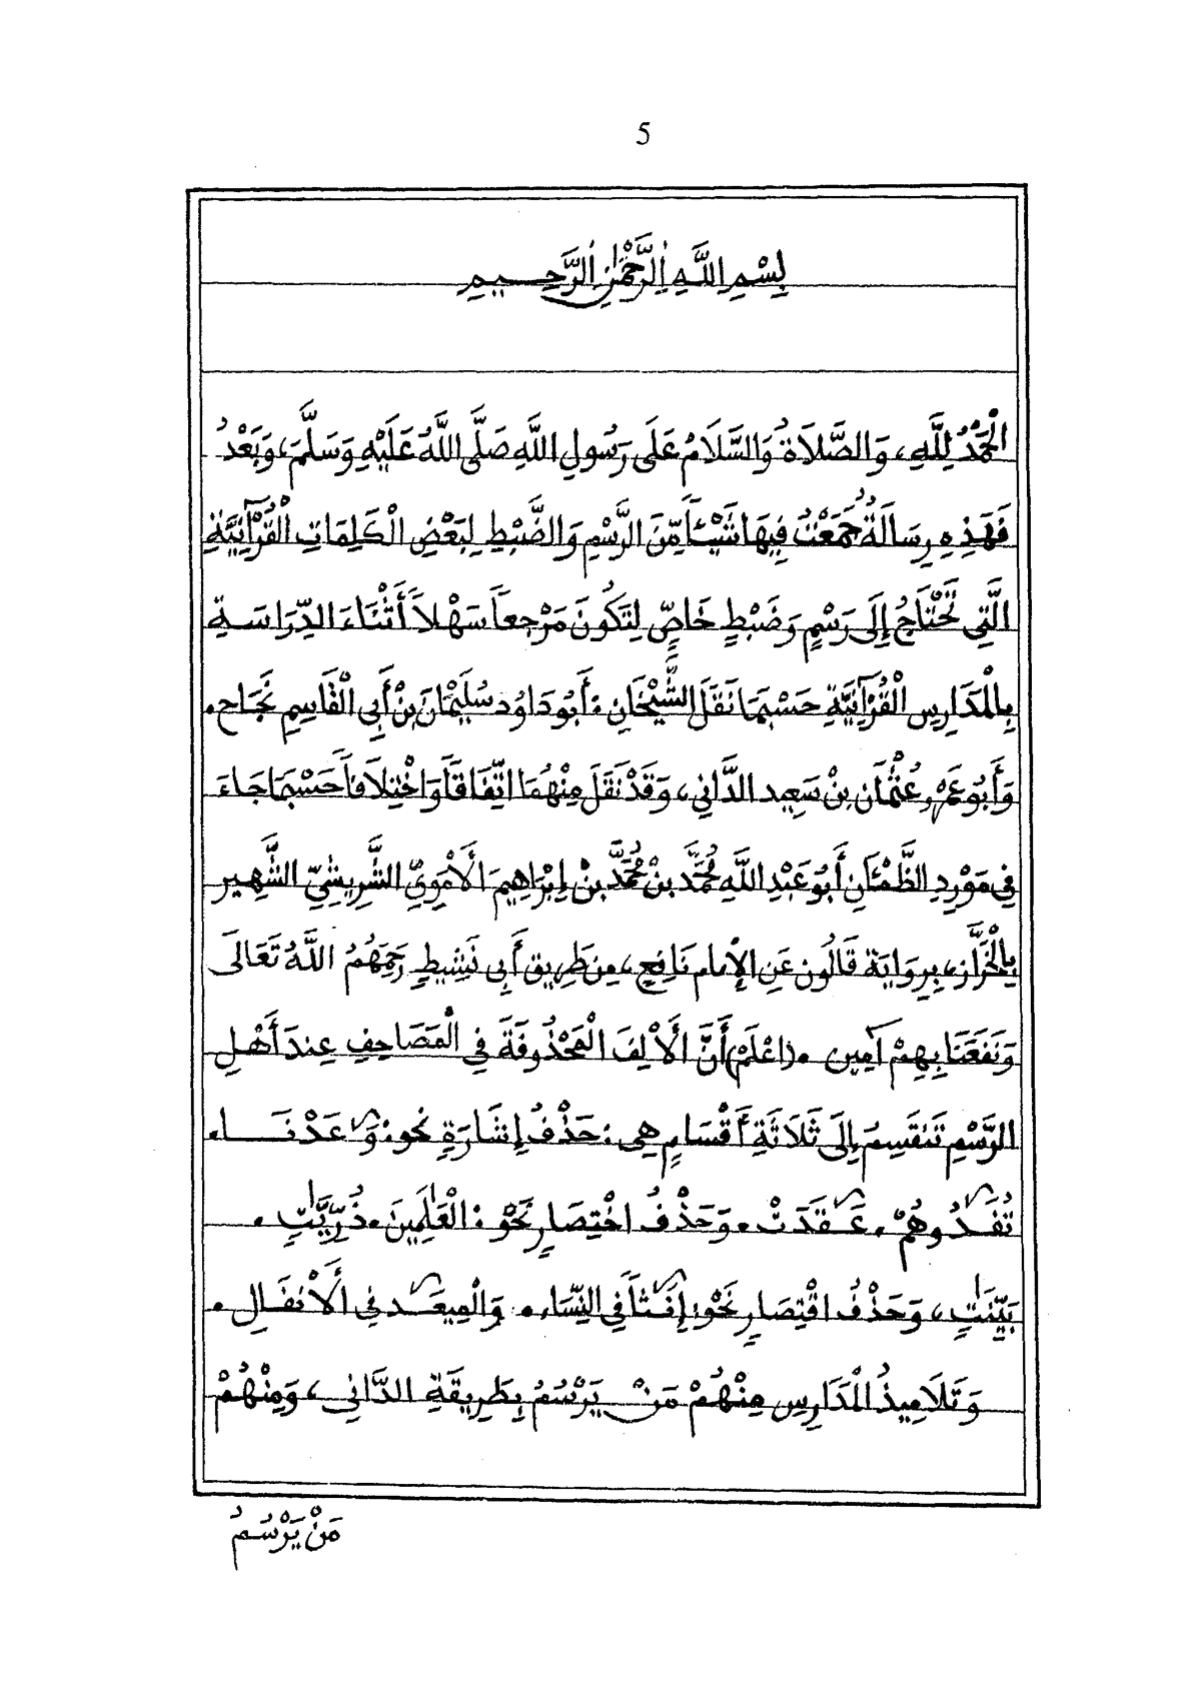 5
بِسْمِ اللَّهِ الرَّحْمَٰنِ الرَّحِيمِ
الْحَمْدُ لِلَّهِ، وَالصَّلَاةُ وَالسَّلَامُ عَلَى رَسُولِ اللَّهِ صَلَّى اللَّهُ عَلَيْهِ وَسَلَّمَ، وَبَعْدُ
فَهَذِهِ رِسَالَةٌ جَمَعْتُ فِيهَا شَيْئاً مِّنَ الرَّسْمِ وَالضَّبْطِ لِبَعْضِ الْكَلِمَاتِ الْقُرْآنِيَّةِ
الَّتِي تَحْتَاجُ إِلَى رَسْمٍ وَضَبْطٍ خَاصٍّ لِتَكُونَ مَرْجِعاً سَهْلاً أَثْنَاءَ الدِّرَاسَةِ
بِالْمَدَارِسِ الْقُرْآنِيَّةِ حَسْبَمَا نَقَلَ الشَّيْخَانِ : أَبُو دَاوُد سُلَيْمَانَ بِنْ أَبِي الْقَاسِمِ نَجَاح.
وَأَبُو عَمْرٍو عُثْمَان بِنْ سَعِيد الدَّانِي، وَقَدْ نَقَلَ مِنْهُمَا اتِّفَاقاً وَاخْتِلَافاً حَسْبَمَا جَاءَ
فِي مَوْرِدِ الظَّمْئَانِ أَبُو عَبْدِ اللَّهِ مُحَمَّد بِنْ مُحَمَّد بِنْ إِبْرَاهِيمَ الْأُمَوِيِّ الشَّرِيشِيِّ الشَّهِير
بِالْخَرَّاز، بِرِوَايَة قَالُون عَنِ الْإِمَام نَافِعٍ، مِن طَرِيق أَبِي نَشِيطٍ رَحِمَهُمُ اللَّهُ تَعَالَى
وَنَفَعَنَا بِهِمْ آمِين . (اعْلَمْ) أَنَّ الْأَلِفَ الْمَحْذُوفَةَ فِي الْمَصَاحِفِ عِندَ أَهْلِ
الرَّسْمِ تَنقَسِمُ إِلَى ثَلَاثَةِ أَقْسَامٍ هِي : حَذْفُ إِشَارَةٍ نَحْو: وَٰعَدْنَا.
تُفَٰدُوهُمْ . عَٰقَدَتْ . وَحَذْفُ اخْتِصَارٍ نَحْو : الْعَٰلَمِينَ . ذُرِّيَّٰتِ .
بَيِّنَٰتٍ ، وَحَذْفُ اقْتِصَارٍ نَحْو: إِنَٰثاً فِي النِّسَاء . وَالْمِيعَٰد فِي الْأَنفَالِ .
وَتَلَامِيذُ الْمَدَارِسِ مِنْهُمْ مَنْ يَرْسُمُ بِطَرِيقَةِ الدَّانِي ، وَمِنْهُمْ
مَنْ يَرْسُمُ